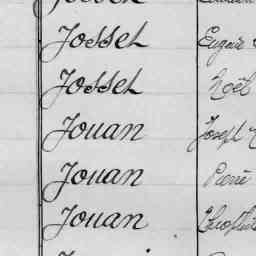 Jossel Eugène
Jossel Noël
Jouan Joseph
Jouan Pierre
Jouan